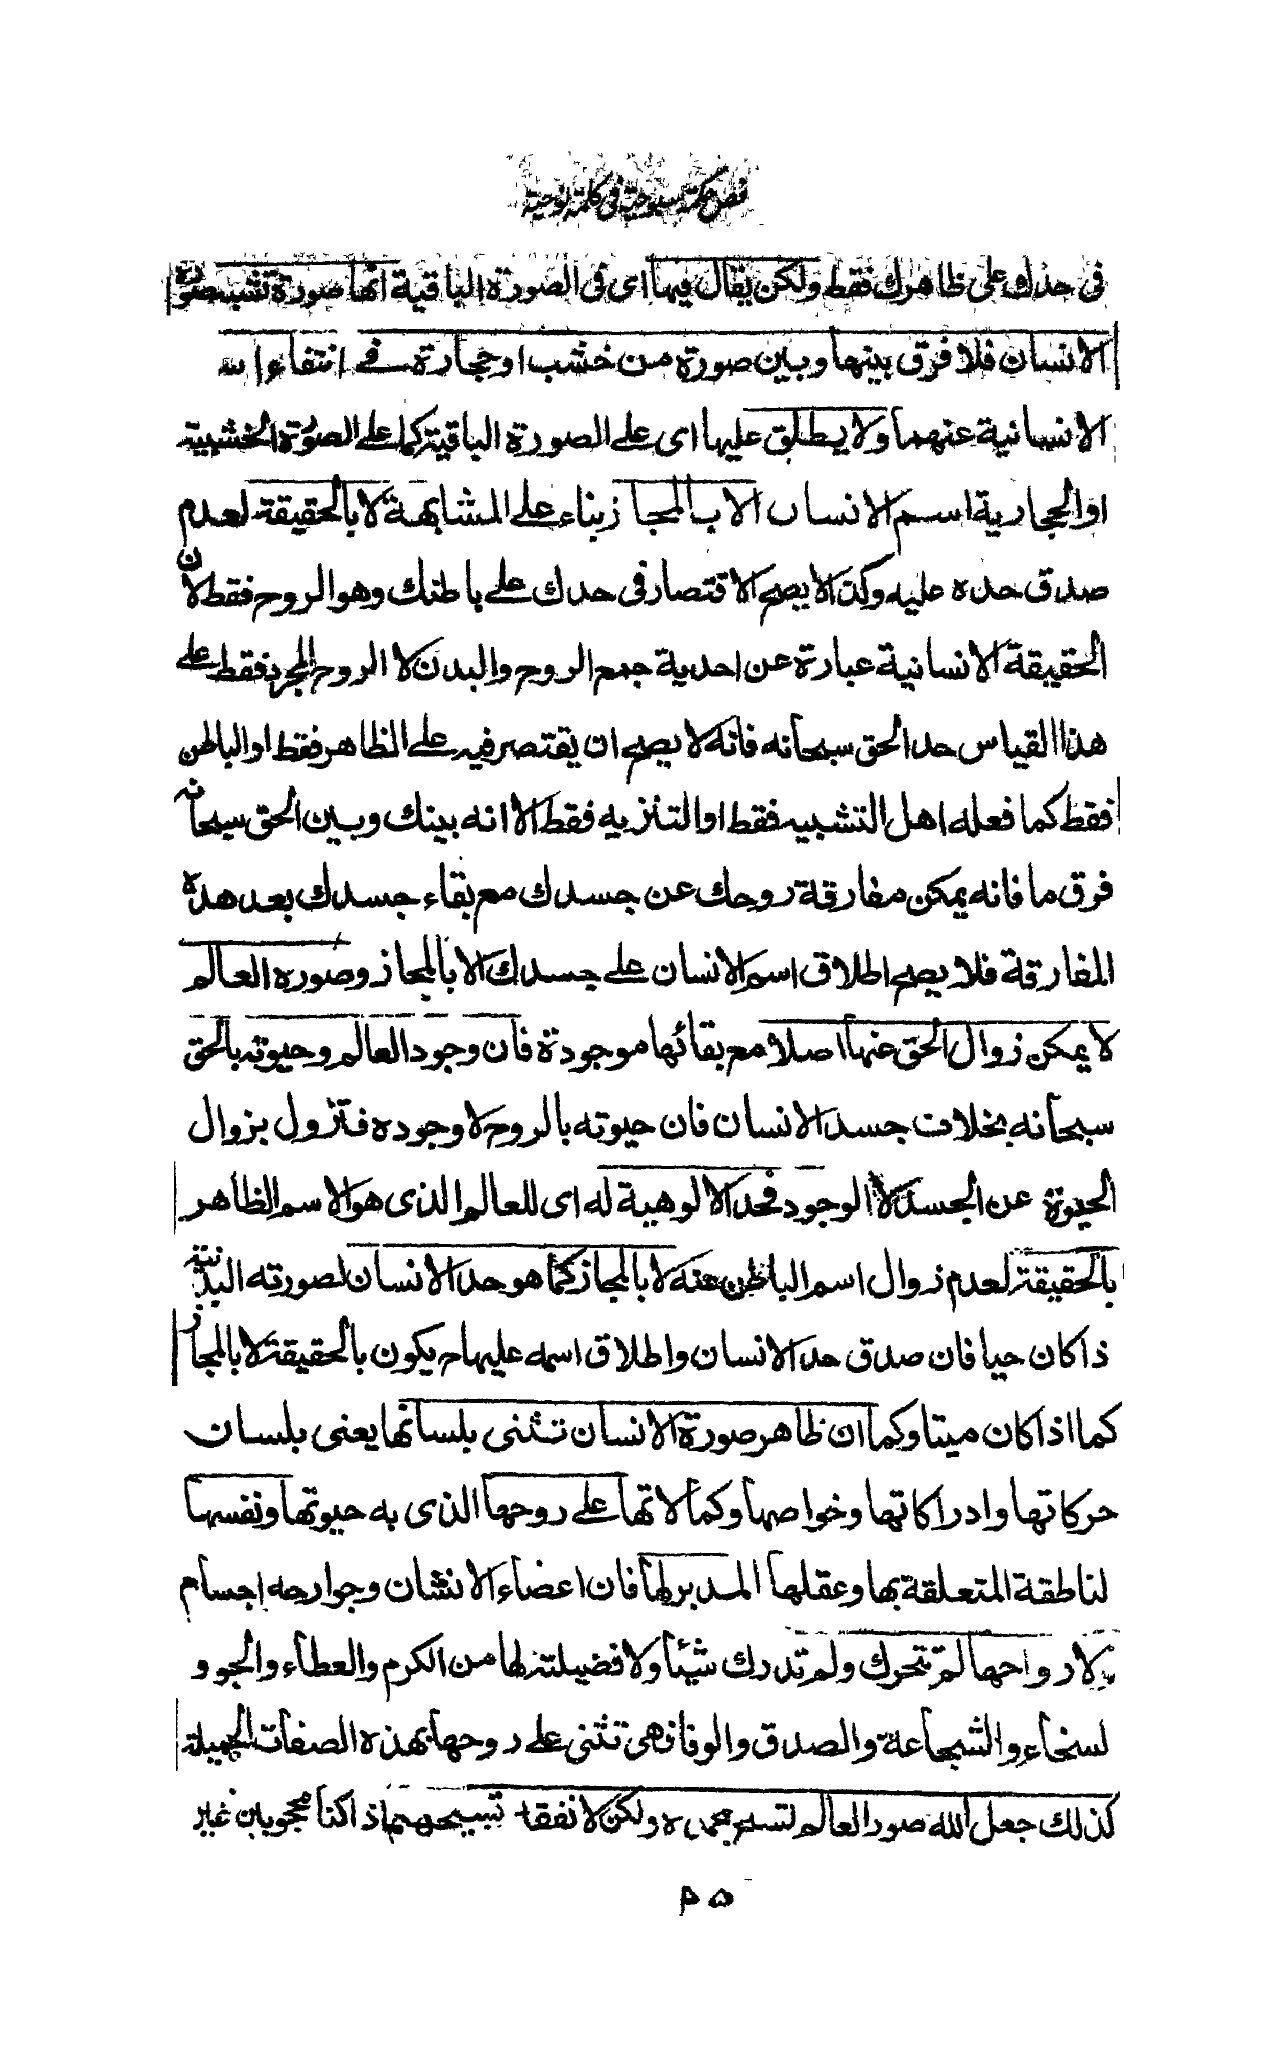 فص حكمة سبوحية في كلمة نوحية
في حدك على ظاهرك فقط ولكن يقال فيها اى في الصورة الباقية انها صورة تشبه صورة
الانسان فلا فرق بينها وبين صورة من خشب او حجارة في انتفاء
الانسانية عنهما ولا يطلق عليها اى على الصورة الباقية كما على الصورة الخشبية
او الحجارية اسم الانسان الا بالمجاز بناء على المشابهة لا بالحقيقة لعدم
صدق حده عليه وكذا لا يصح الاقتصار في حدك على باطنك وهو الروح فقط لان
الحقيقة الانسانية عبارة عن احدية جمع الروح والبدن لا الروح المجرد فقط على
هذا القياس حد الحق سبحانه فانه لا يصح ان يقتصر فيه على الظاهر فقط او الباطن
فقط كما فعله اهل التشبيه فقط او التنزيه فقط الا انه بينك وبين الحق سبحانه
فرق ما فانه يمكن مفارقة روحك عن جسدك مع بقاء جسدك بعد هذه
المفارقة فلا يصح اطلاق اسم الانسان على جسدك الا بالمجاز وصورة العالم
لا يمكن زوال الحق عنها اصلا مع بقائها موجودة فان وجود العالم وحيوته بالحق
سبحانه بخلاف جسد الانسان فان حيوته بالروح لا وجوده فتزول بزوال
الحيوة عن الجسد لا الوجود فحد الالوهية له اى للعالم الذى هو الاسم الظاهر
بالحقيقة لعدم زوال اسم الباطن عنه لا بالمجاز كما هو حد الانسان لصورته البدنية
ذا كان حيا فان صدق حد الانسان واطلاق اسمه عليها ح يكون بالحقيقة لا بالمجاز
كما اذا كان ميتا وكما ان ظاهر صورة الانسان تثنى بلسانها يعنى بلسان
حركاتها وادراكاتها وخواصها وكمالاتها على روحها الذى به حيوتها ونفسها
لناطقة المتعلقة بها وعقلها المدبر لها فان اعضاء الانسان وجوارحه اجسام
لولا رواحها لم تتحرك ولم تدرك شيئا ولا فضيلة لها من الكرم والعطاء والجود و
لسخاء والشجاعة والصدق والوفا فهى تثنى على روحها بهذه الصفات الجميلة
كذلك جعل الله صور العالم تسبح بحمده ولكن لا نفقه تسبيحهم اذا كنا محجوبين غير
۵۴